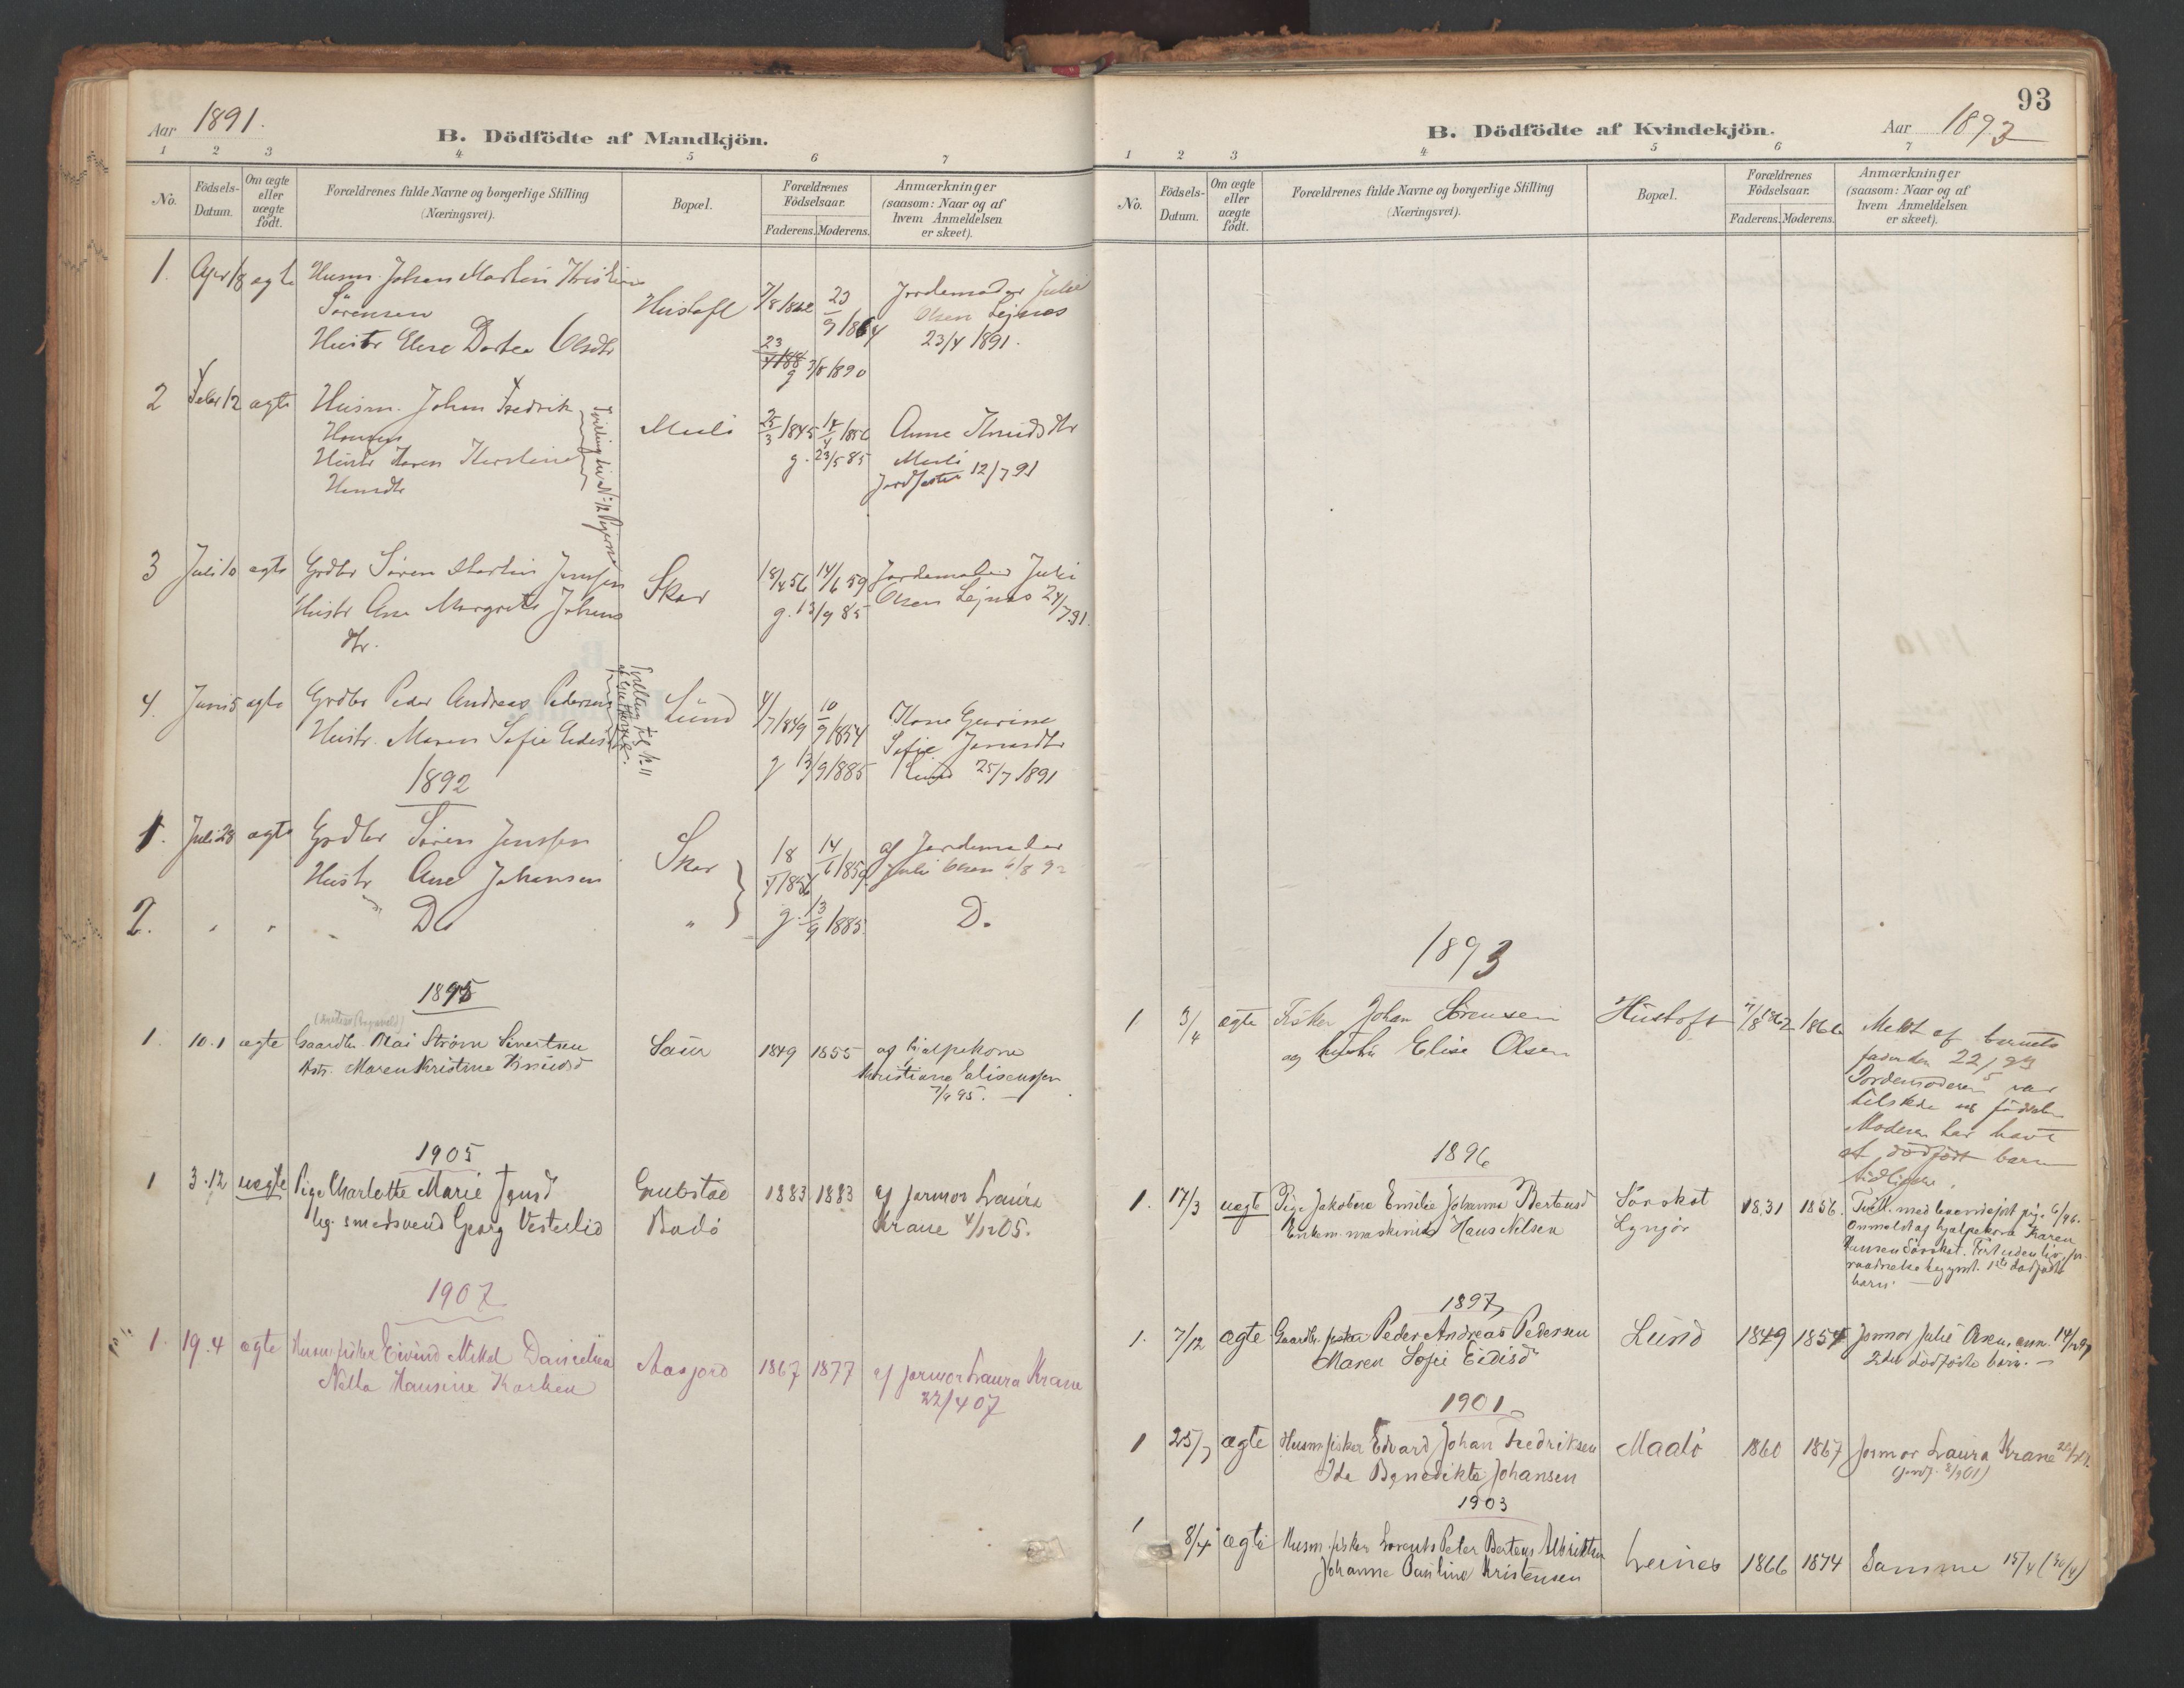 Aar 1891.
B. Dödfödte af Mandkjön.
1 2 3 4 5 6 7
No.
Födsels-
Datum.
Om ægte
eller
uægte
födt.
Forældrenes fulde Navne og borgerlige Stilling
(Næringsvei).
Bopæl.
Forældrenes
Födselsaar.
Faderens. Moderens.
Anmærkninger
(saasom: Naar og af
hvem Anmeldelsen
er skeet).
1. Apr 18 ægte Husm. Johan Martin Kristian
Sørensen
Hustr Else Dortea Olsdtr
Hustoft
7/8 1862 23/9 1864
3/8 1890
Jordemoder Julie
Olsen Lejnes
23/4 1891.
2 Febr 12 ægte Husm. Johan Fredrik
Hansen
Hustr Karen Kerstine
Hansdtr
Tvilling til No 12 Pigerne
Meeli
25/3 1845 14/4 1850
g. 23/5 85
Anne Knudsdtr
Meeli
Jordfæstet 12/7 91
3 Juli 10 ægte Grdbr Sören Martin Jenssen
Hustr Ane Margrete Johans
dtr.
Skar
18/4 56 14/6 59
g. 13/9 85
Jordemoder Juli
Olsen Lejnes 24/7 91.
4. Juni 5 ægte Grdbr Peder Andreas Pedersen
Hustr. Maren Sofie Eidesdtr
Tvilling til No 11
Lund
4/7 1849 10/9 1854
g 13/9 1885
Kone Gurine
Sofie Jonasdtr
Lund 25/7 1891
1892
1. Juli 28 ægte Grdbr Sören Jenssen
Hustr Ane Johansen
Skar
18/4 1856 14/6 1859
af Jordemoder
Juli Olsen 6/8 92
2. " " " Do " g. 13/9 1885 Do
1895
1. 10.1 ægte Gaardbr. Olai Ström Sivertsen
Hstr. Maren Kristine Knudsd
Saur 1849 1855
af hjælpekone
Kristiane Eliseussen
7/4 95.
1905
1 3.12 uægte Pige Charlotte Marie Jensd
Ug. smedsvend Georg Vesterlid
Grubstad
Bodö
1883 1883
af jormor Laura
Krane 4/12 05.
1907
1. 19.4 ægte Husm. fisker Eivind Mikal Danielsen
Nella Hansine Karlsen
Aasjord 1867 1877
af jormor Laura Krane
22/4 07
93
B. Dödfödte af Kvindekjön.
Aar 1893
1 2 3 4 5 6 7
No.
Födsels-
Datum.
Om ægte
eller
uægte
födt.
Forældrenes fulde Navne og borgerlige Stilling
(Næringsvei).
Bopæl.
Forældrenes
Födselsaar.
Faderens. Moderens.
Anmærkninger
(saasom: Naar og af
hvem Anmeldelsen
er skeet).
1893
1 3/4 ægte Fisker Johan Sörensen
og hustru Elise Olsen
Hustoft 7/8 1862 1864
Meldt af barnets
fader den 22/5 93
Jordemoderen var
tilstede ved födselen
Moderen har havt
et dödfödt barn
tidligere.
1896
1. 17/3 uægte Pige Jakobine Emilie Johanna Bertensd
Enkem. maskinist Hans Nilsen
Sörskot
Lyngör
1831 1856.
Tvill. med levendefödt pige 6/96.
Anmeldt af hjælpekone Karen
Hansen Sörskot. Født uden liv, for-
raadnelse begyndt. 1ste dödfödte
barn. —
1897
1. 7/12 ægte Gaardbr. fisker Peder Andreas Pedersen
Maren Sofie Eidisd
Lund 1849 1854
Jormor Julie Olsen, anm. 14/12 97
2det dödfödte barn. —
1901
1 25/7 ægte Husm. fisker Edvard Johan Fredriksen
Ida Benedikte Johansen
Maalö 1860 1867
Jormor Laura Krane
(jordf. 8/9 01)
1903
1 8/4 ægte Husm. fisker Lorents Peter Berteus Ulriksen
Johanne Pauline Kristensen
Leines 1866 1874 Samme 15/4 (30/4)